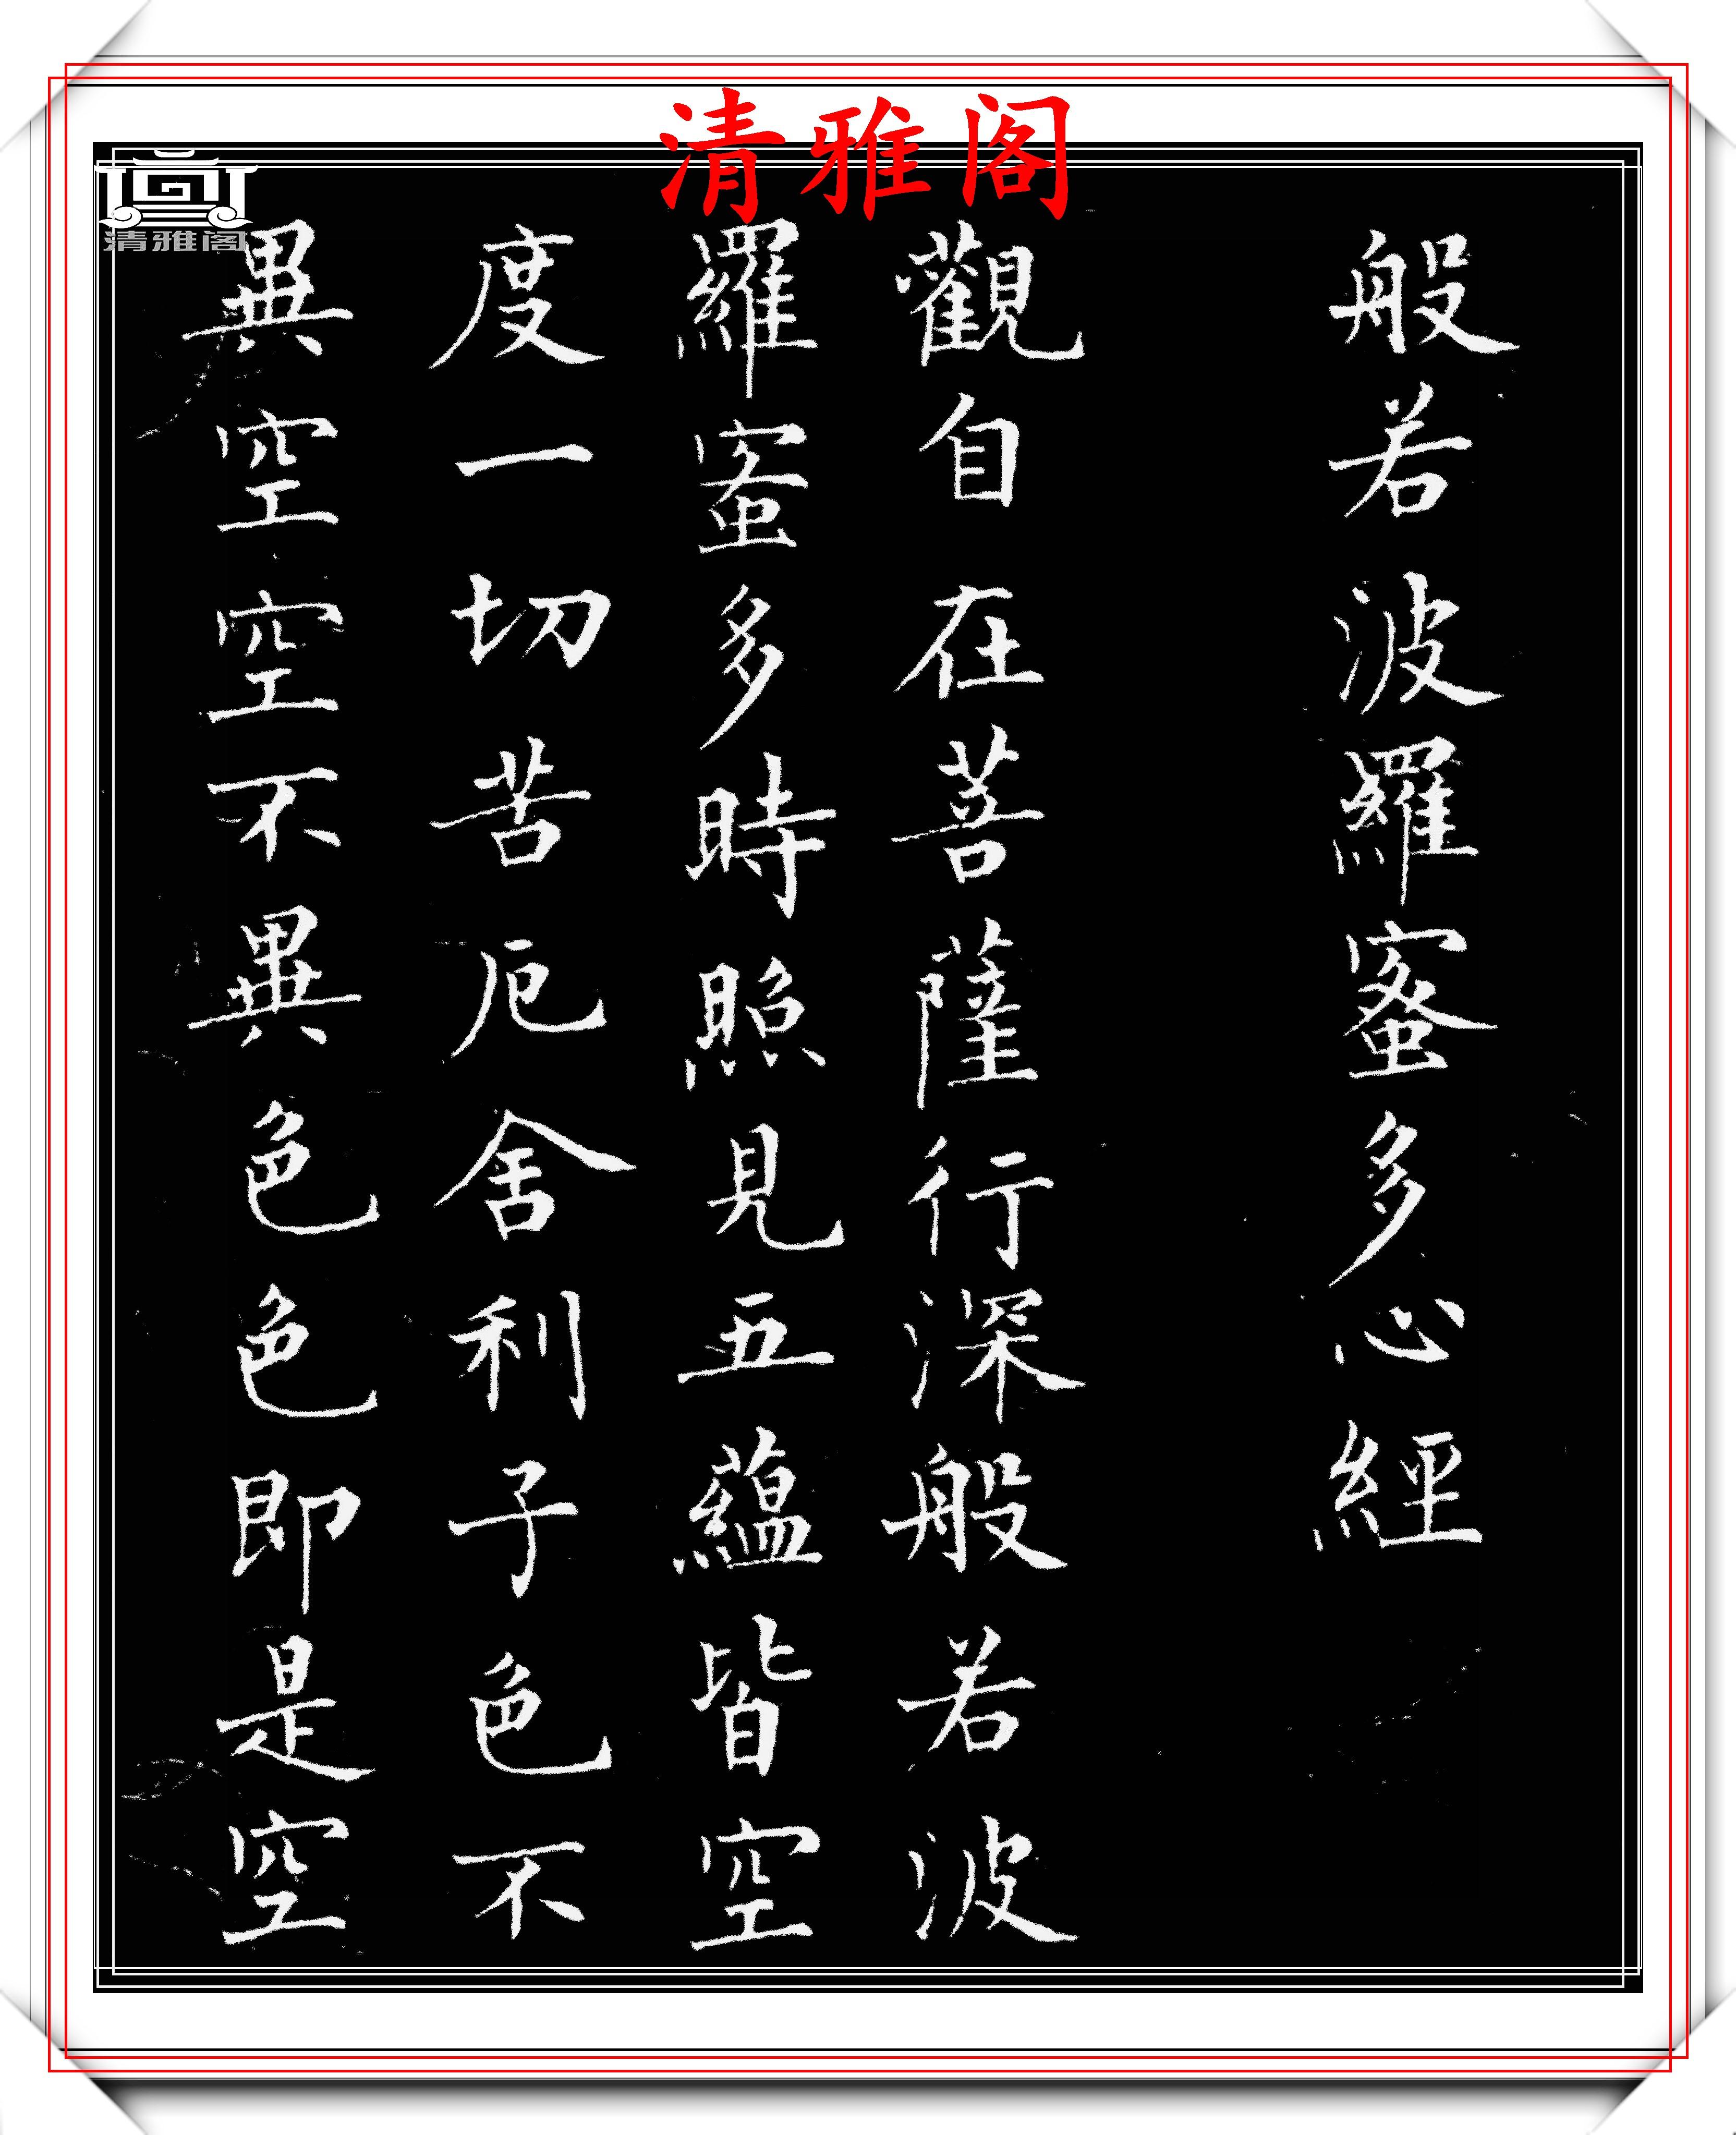 清雅阁
清雅阁
般若波羅蜜多心經
觀自在菩薩行深般若波
羅蜜多時照見五蘊皆空
度一切苦厄舍利子色不
異空空不異色色即是空